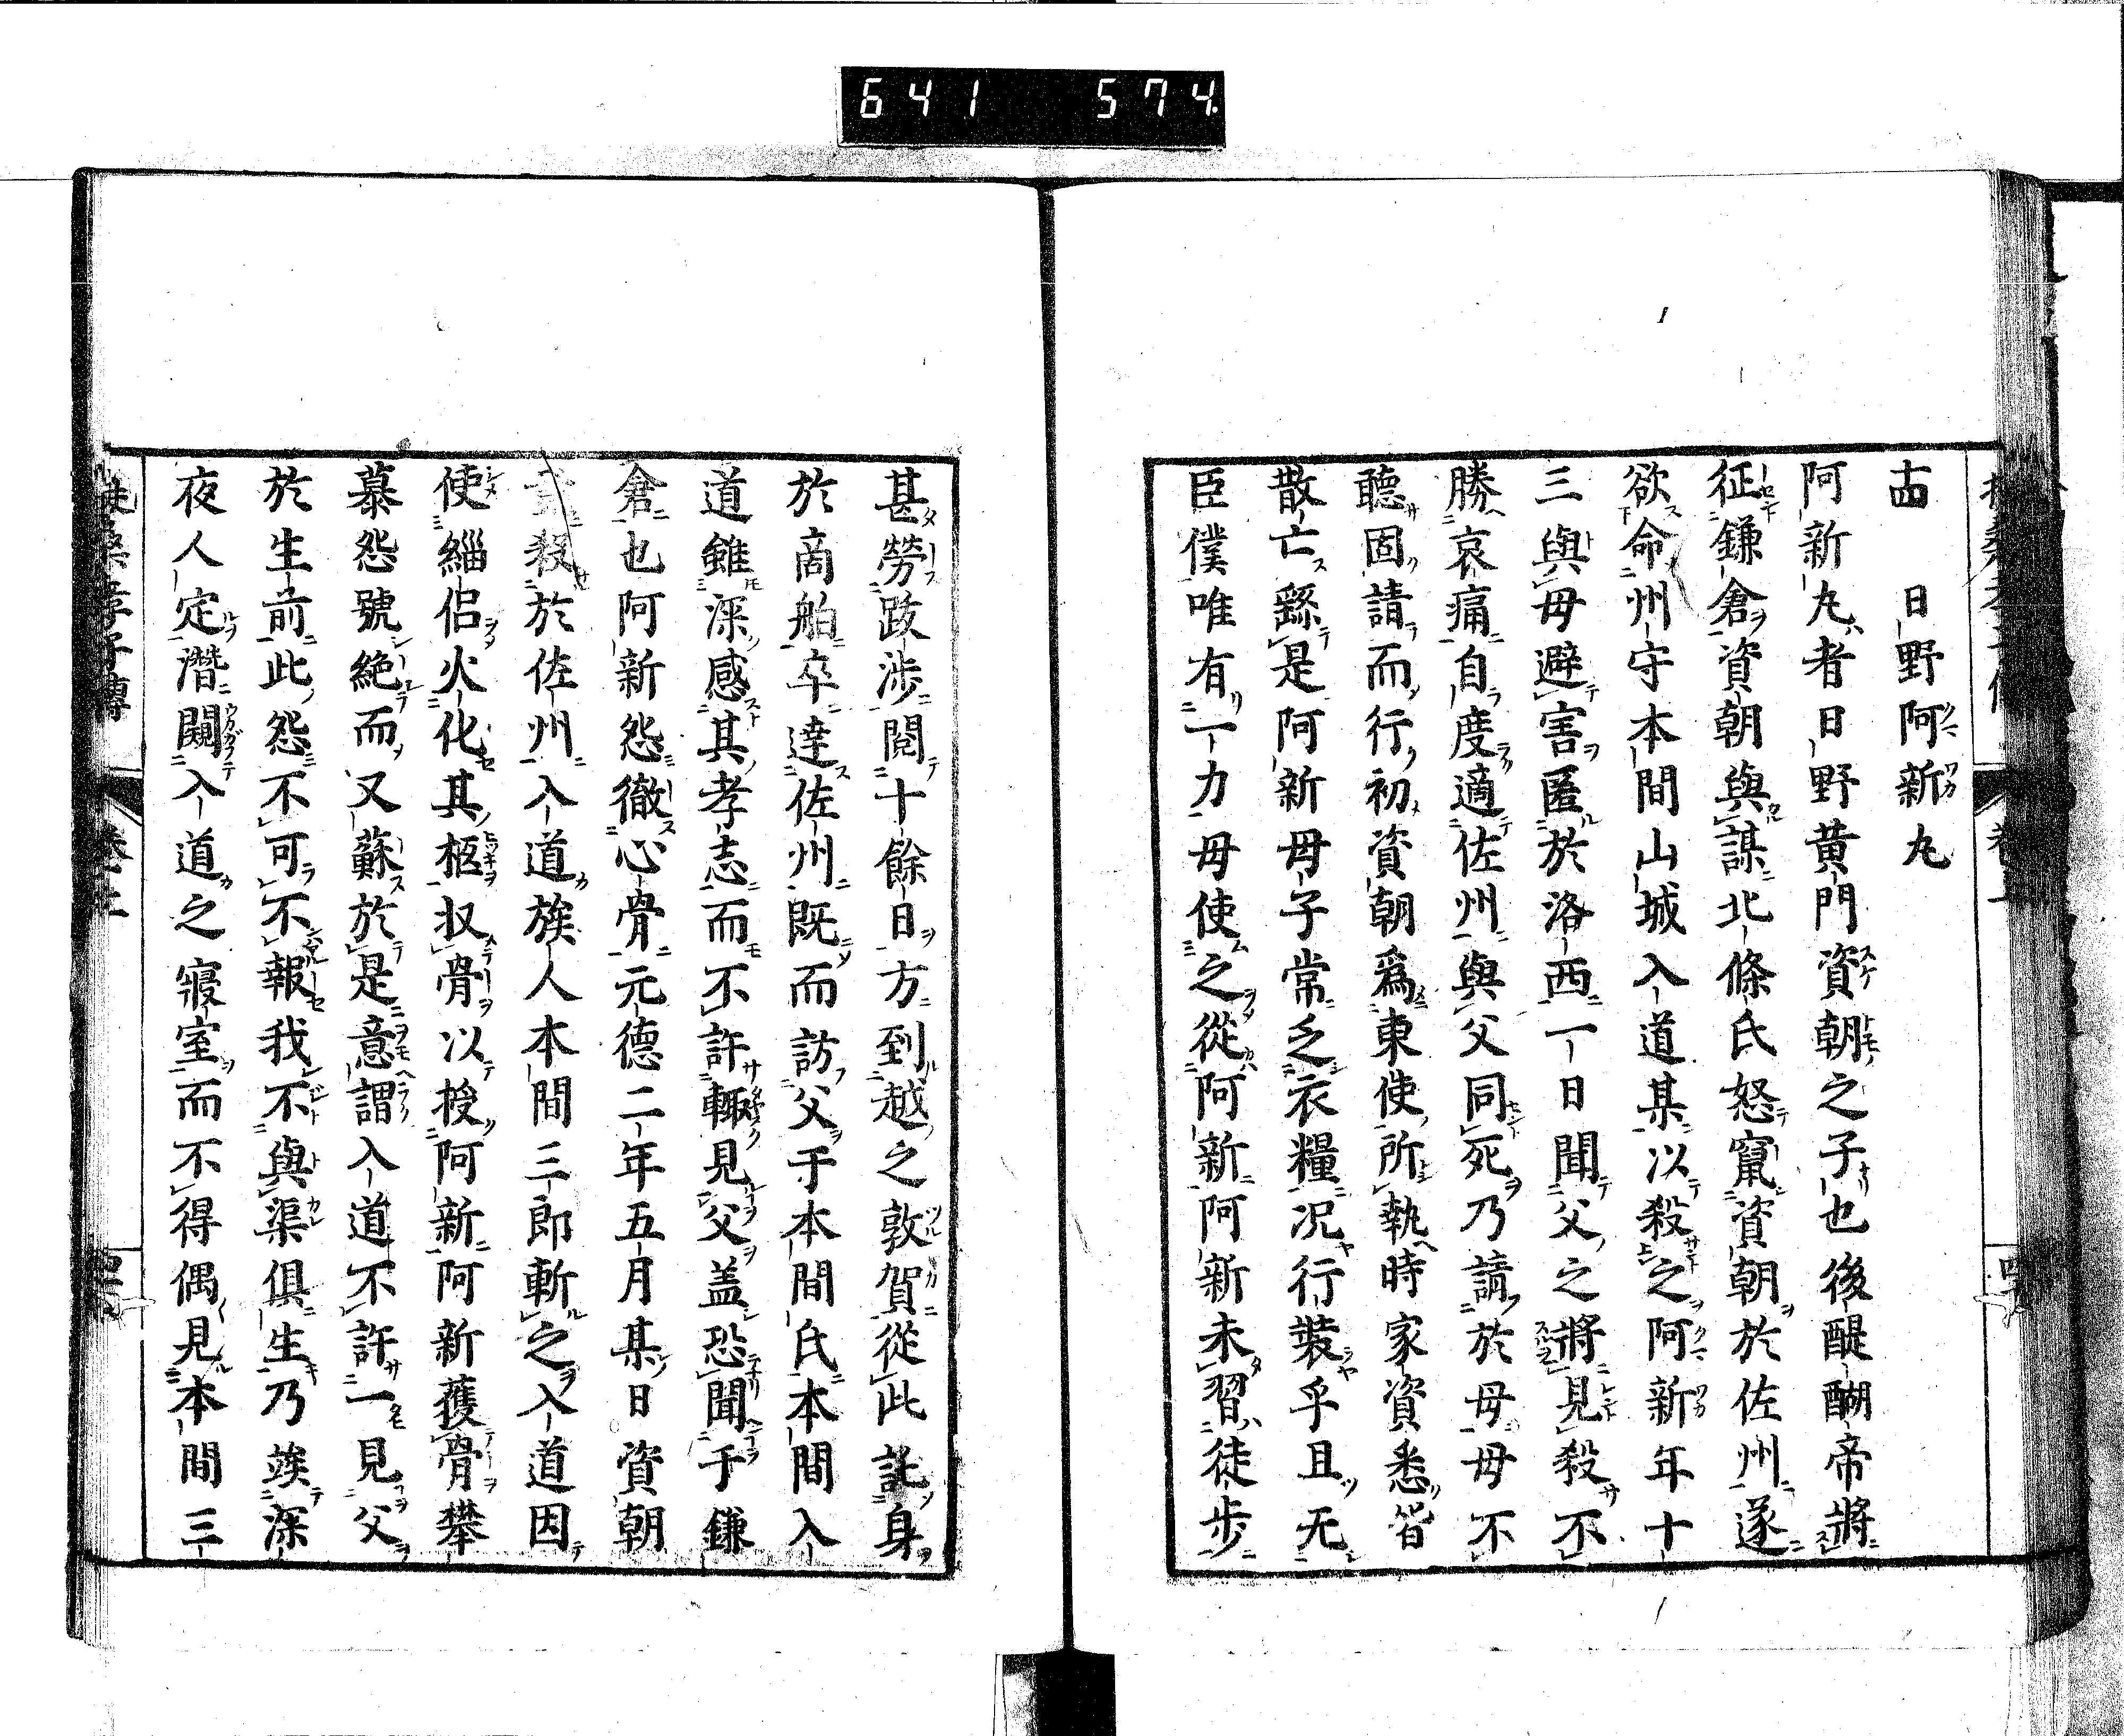 641 574
十四 日野阿新丸
阿新丸者日野黄門資朝之子也後醍醐帝將
征鎌倉資朝與謀北條氏怒竄資朝於佐州遂
欲命州守本間山城入道某以殺之阿新年十
三與母避害匿於洛西一日聞父之將見殺不
勝哀痛自度適佐州與父同死乃請於母母不
聽固請而行初資朝爲東使所執時家資悉皆
散亡繇是阿新母子常乏衣糧况行裝乎且无
臣僕唯有一力母使之從阿新阿新未習徒步
甚勞跋涉閲十餘日方到越之敦賀從此託身
於商舶卒達佐州既而訪父于本間氏本間入
道雖深感其孝志而不許輙見父盖恐聞于鎌
倉也阿新怨徹心骨元德二年五月某日資朝
殺於佐州入道族人本間三郎斬之入道因
使緇侶火化其柩収骨以授阿新阿新獲骨攀
慕怨號絶而又蘇於是意謂入道不許一見父
於生前此怨不可不報我不與渠俱生乃竢深
夜人定潛闚入道之寢室而不得偶見本間三
扶桑孝子傳 卷上